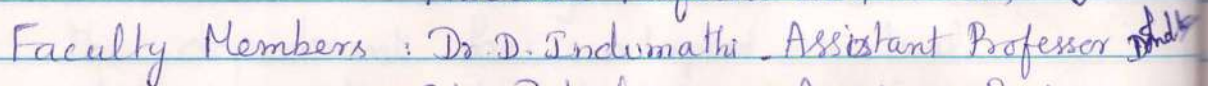 Faculty Members : Dr. D. Indumathi - Assistant Professor